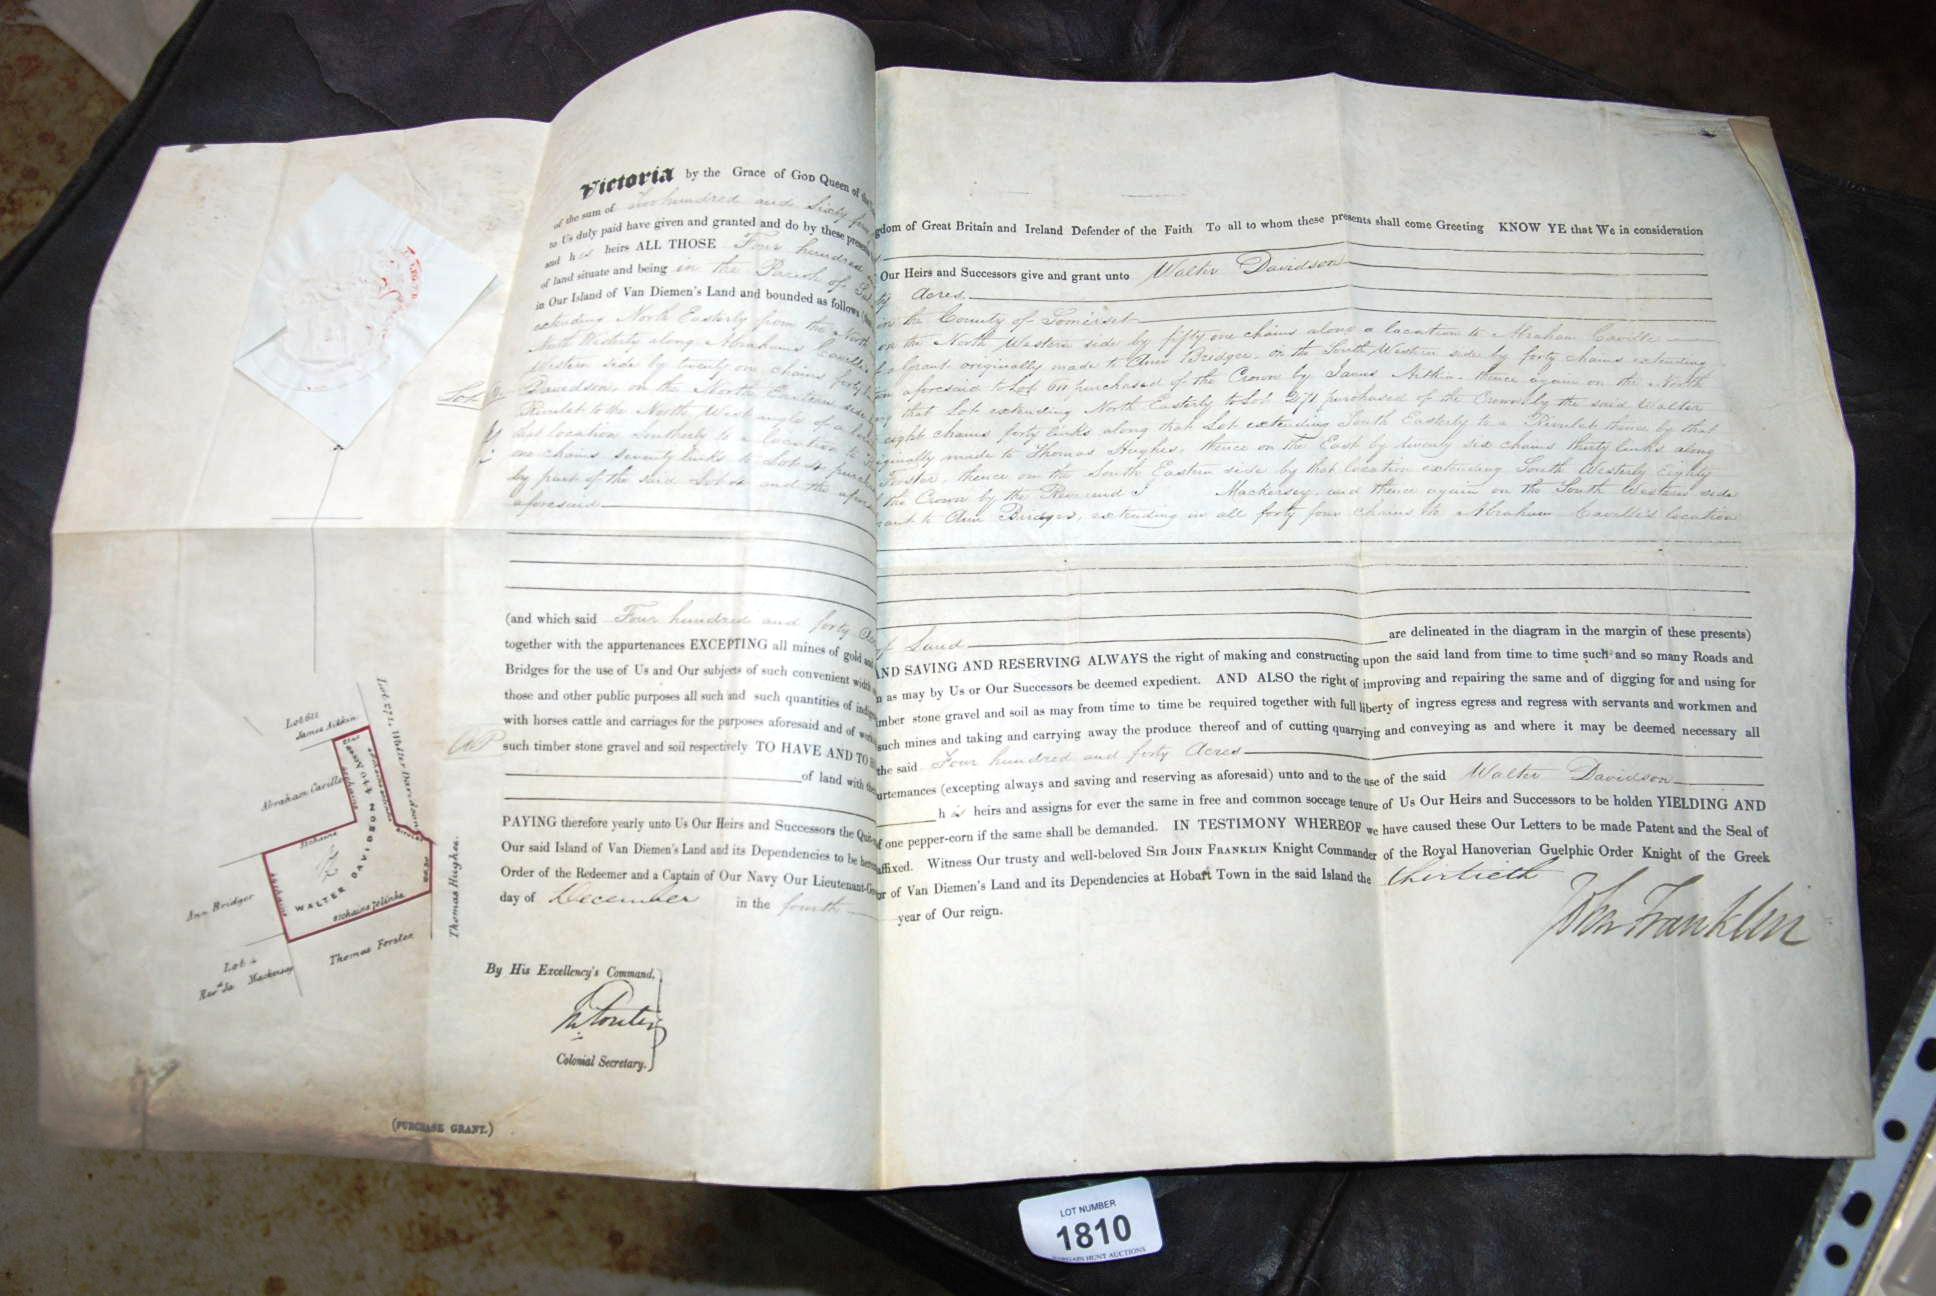 Victoria by the Grace of GOD Queen of the
gdom of Great Britain and Ireland Defender of the Faith To all to whom these presents shall come Greeting KNOW YE that We in consideration
of the sum of two hundred and Sixty four
to Us duly paid have given and granted and do by these presents
Our Heirs and Successors give and grant unto Walter Davidson
and his heirs ALL THOSE Four hundred
Acres
of land situate and being in the Parish of
in the County of Somerset
in Our Island of Van Diemen's Land and bounded as follows
on the North Western side by fifty one chains along a location to Abraham Caville
extending North Easterly from the North
a Grant originally made to Ann Bridger, on the South Western side by forty chains extending
North Westerly along Abraham Caville's
aforesaid to Lot 611 purchased of the Crown by James Aitkin, thence again on the North
Western side by twenty one chains forty
that Lot extending North Easterly to Lot 271 purchased of the Crown by the said Walter
Davidson, on the North Eastern side
eight chains forty links along that Lot extending South Easterly to a Rivulet thence by that
Rivulet to the North West angle of a
originally made to Thomas Hughes, thence on the East by twenty six chains thirty links along
that location Southerly to a location to
Forster, thence on the South Eastern side by that location extending South Westerly Eighty
one chains seventy links to Lot
the Crown by the Reverend J Mackersey, and thence again on the South Western side
by part of the said Lot and the
to Ann Bridger, extending in all forty four chains to Abraham Caville's location
aforesaid
Lot
(and which said Four hundred and forty
of Land are delineated in the diagram in the margin of these presents)
together with the appurtenances EXCEPTING all mines of gold and
AND SAVING AND RESERVING ALWAYS the right of making and constructing upon the said land from time to time such and so many Roads and
Bridges for the use of Us and Our subjects of such convenient width
as may by Us or Our Successors be deemed expedient. AND ALSO the right of improving and repairing the same and of digging for and using for
those and other public purposes all such and such quantities of
mber stone gravel and soil as may from time to time be required together with full liberty of ingress egress and regress with servants and workmen and
with horses cattle and carriages for the purposes aforesaid and of
such mines and taking and carrying away the produce thereof and of cutting quarrying and conveying as and where it may be deemed necessary all
such timber stone gravel and soil respectively TO HAVE AND TO
the said Four hundred and forty Acres
of land with the
urtenances (excepting always and saving and reserving as aforesaid) unto and to the use of the said Walter Davidson
his heirs and assigns for ever the same in free and common soccage tenure of Us Our Heirs and Successors to be holden YIELDING AND
PAYING therefore yearly unto Us Our Heirs and Successors the
of one pepper-corn if the same shall be demanded. IN TESTIMONY WHEREOF we have caused these Our Letters to be made Patent and the Seal of
Our said Island of Van Diemen's Land and its Dependencies to be
affixed. Witness Our trusty and well-beloved SIR JOHN FRANKLIN Knight Commander of the Royal Hanoverian Guelphic Order Knight of the Greek
Order of the Redeemer and a Captain of Our Navy Our
or of Van Diemen's Land and its Dependencies at Hobart Town in the said Island the thirtieth
day of December in the fourth
year of Our reign.
John Franklin
By His Excellency's Command,
Colonial Secretary.
(PURCHASE GRANT.)
Lot 611
James Aitkin
Lot 271, Walter Davidson
Abraham Caville
440 Acres
WALTER DAVIDSON
Ann Bridger
Thomas Hughes.
Lot
Mackersey
Thomas Forster
LOT NUMBER
1810
BARGAIN HUNT AUCTIONS